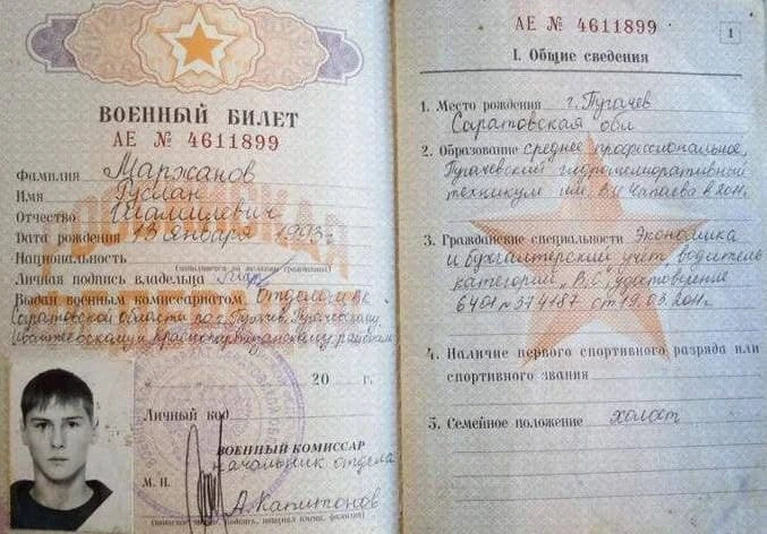 ВОЕННЫЙ БИЛЕТ
АЕ № 4611899
Фамилия Маржанов
Имя Руслан
Отчество Шамилевич
Дата рождения 13 января 1993г
Национальность
Личная подпись владельца
Выдан военным комиссариатом Отделом ВК
Саратовской области по г. Пугачёв, Пугачёвскому,
Ивантеевскому и Краснопартизанскому районам
20 г.
Личный код
ВОЕННЫЙ КОМИССАР
начальник отдела
М. П.
А. Капитонов
АЕ № 4611899
1
I. Общие сведения
1. Место рождения г. Пугачев
Саратовская обл
2. Образование среднее профессиональное,
Пугачевский гидромелиоративный
техникум им. В.И Чапаева в 2011г.
3. Гражданские специальности Экономика
и бухгалтерский учет, водитель
категории „В, С", удостоверение
6401 № 374187 от 19.03.2011г.
4. Наличие первого спортивного разряда или
спортивного звания
5. Семейное положение холост